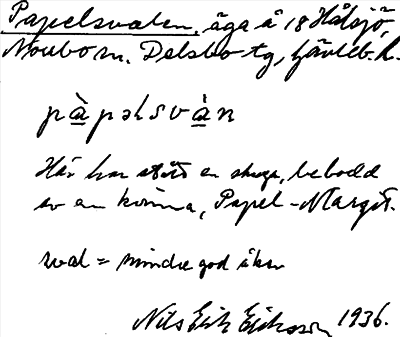 Papelsvalen, äga å 18 Hålsjö,
Norrbo sn. Delsbo tg, Gävleb. l.
pàpəlsvàn
Här har stått en stuga, bebodd
av en kvinna, Papel-Margit.
sval = mindre god åker
Nils Erik Eriksson 1936.